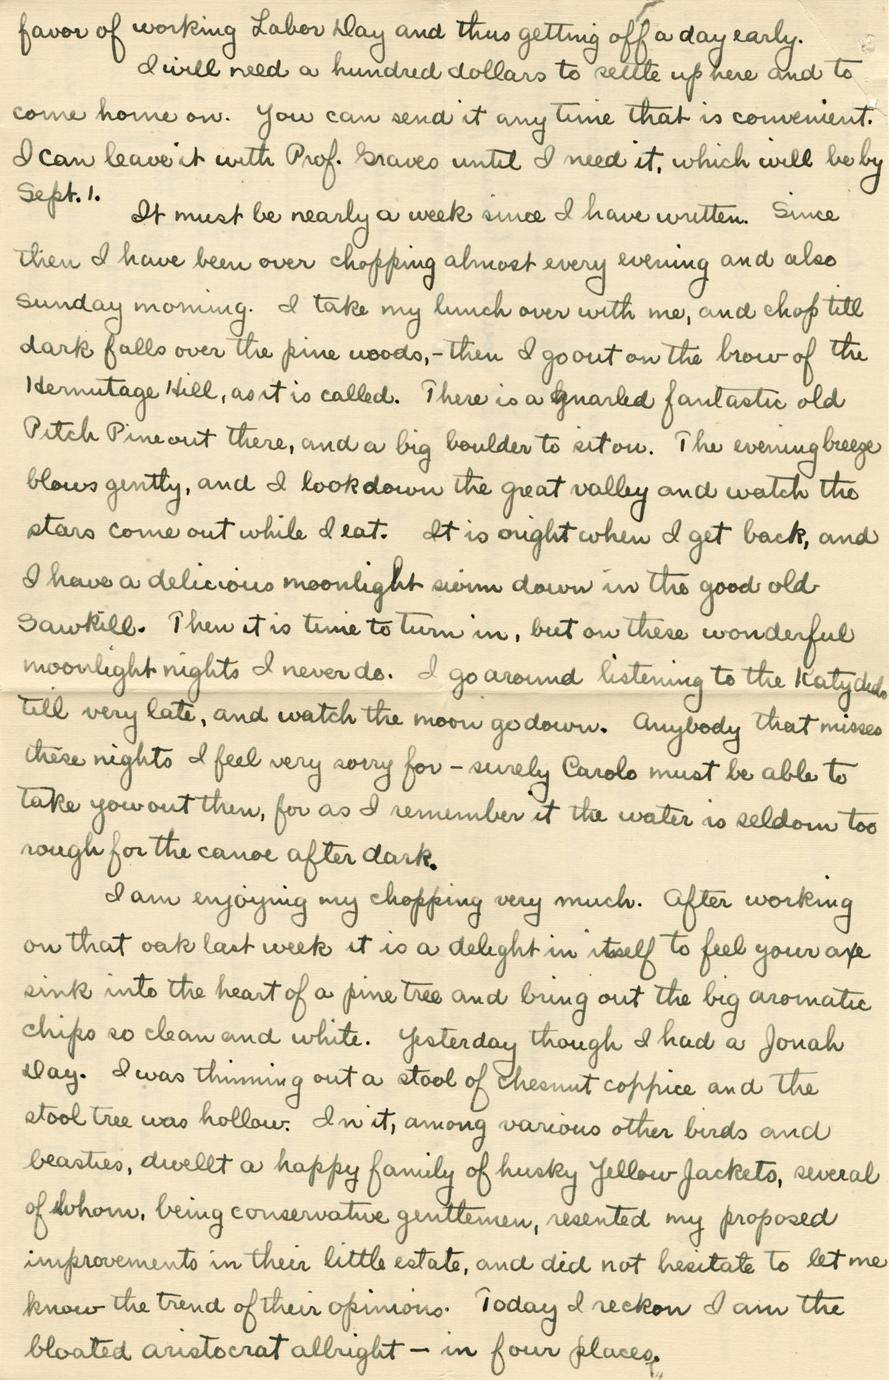 favor of working Labor Day and thus getting off a day early.
I will need a hundred dollars to settle up here and to
come home on. You can send it any time that is convenient.
I can leave it with Prof. Graves until I need it, which will be by
Sept. 1.
It must be nearly a week since I have written. Since
then I have been over chopping almost every evening and also
Sunday morning. I take my lunch over with me, and chop till
dark falls over the pine woods, - then I go out on the brow of the
Hermitage Hill, as it is called. There is a gnarled fantastic old
Pitch Pine out there, and a big boulder to sit on. The evening breeze
blows gently, and I look down the great valley and watch the
stars come out while I eat. It is night when I get back, and
I have a delicious moonlight swim down in the good old
Sawkill. Then it is time to turn in, but on these wonderful
moonlight nights I never do. I go around listening to the Katydids
till very late, and watch the moon go down. Anybody that misses
these nights I feel very sorry for – surely Carolo must be able to
take you out then, for as I remember it the water is seldom too
rough for the canoe after dark.
I am enjoying my chopping very much. After working
on that oak last week it is a delight in itself to feel your axe
sink into the heart of a pine tree and bring out the big aromatic
chips so clean and white. Yesterday though I had a Jonah
Day. I was thinning out a stool of chesnut coppice and the
stool tree was hollow. In it, among various other birds and
beasties, dwellt a happy family of husky Yellow Jackets, several
of whom, being conservative gentlemen, resented my proposed
improvements in their little estate, and did not hesitate to let me
know the trend of their opinions. Today I reckon I am the
bloated aristocrat allright – in four places.